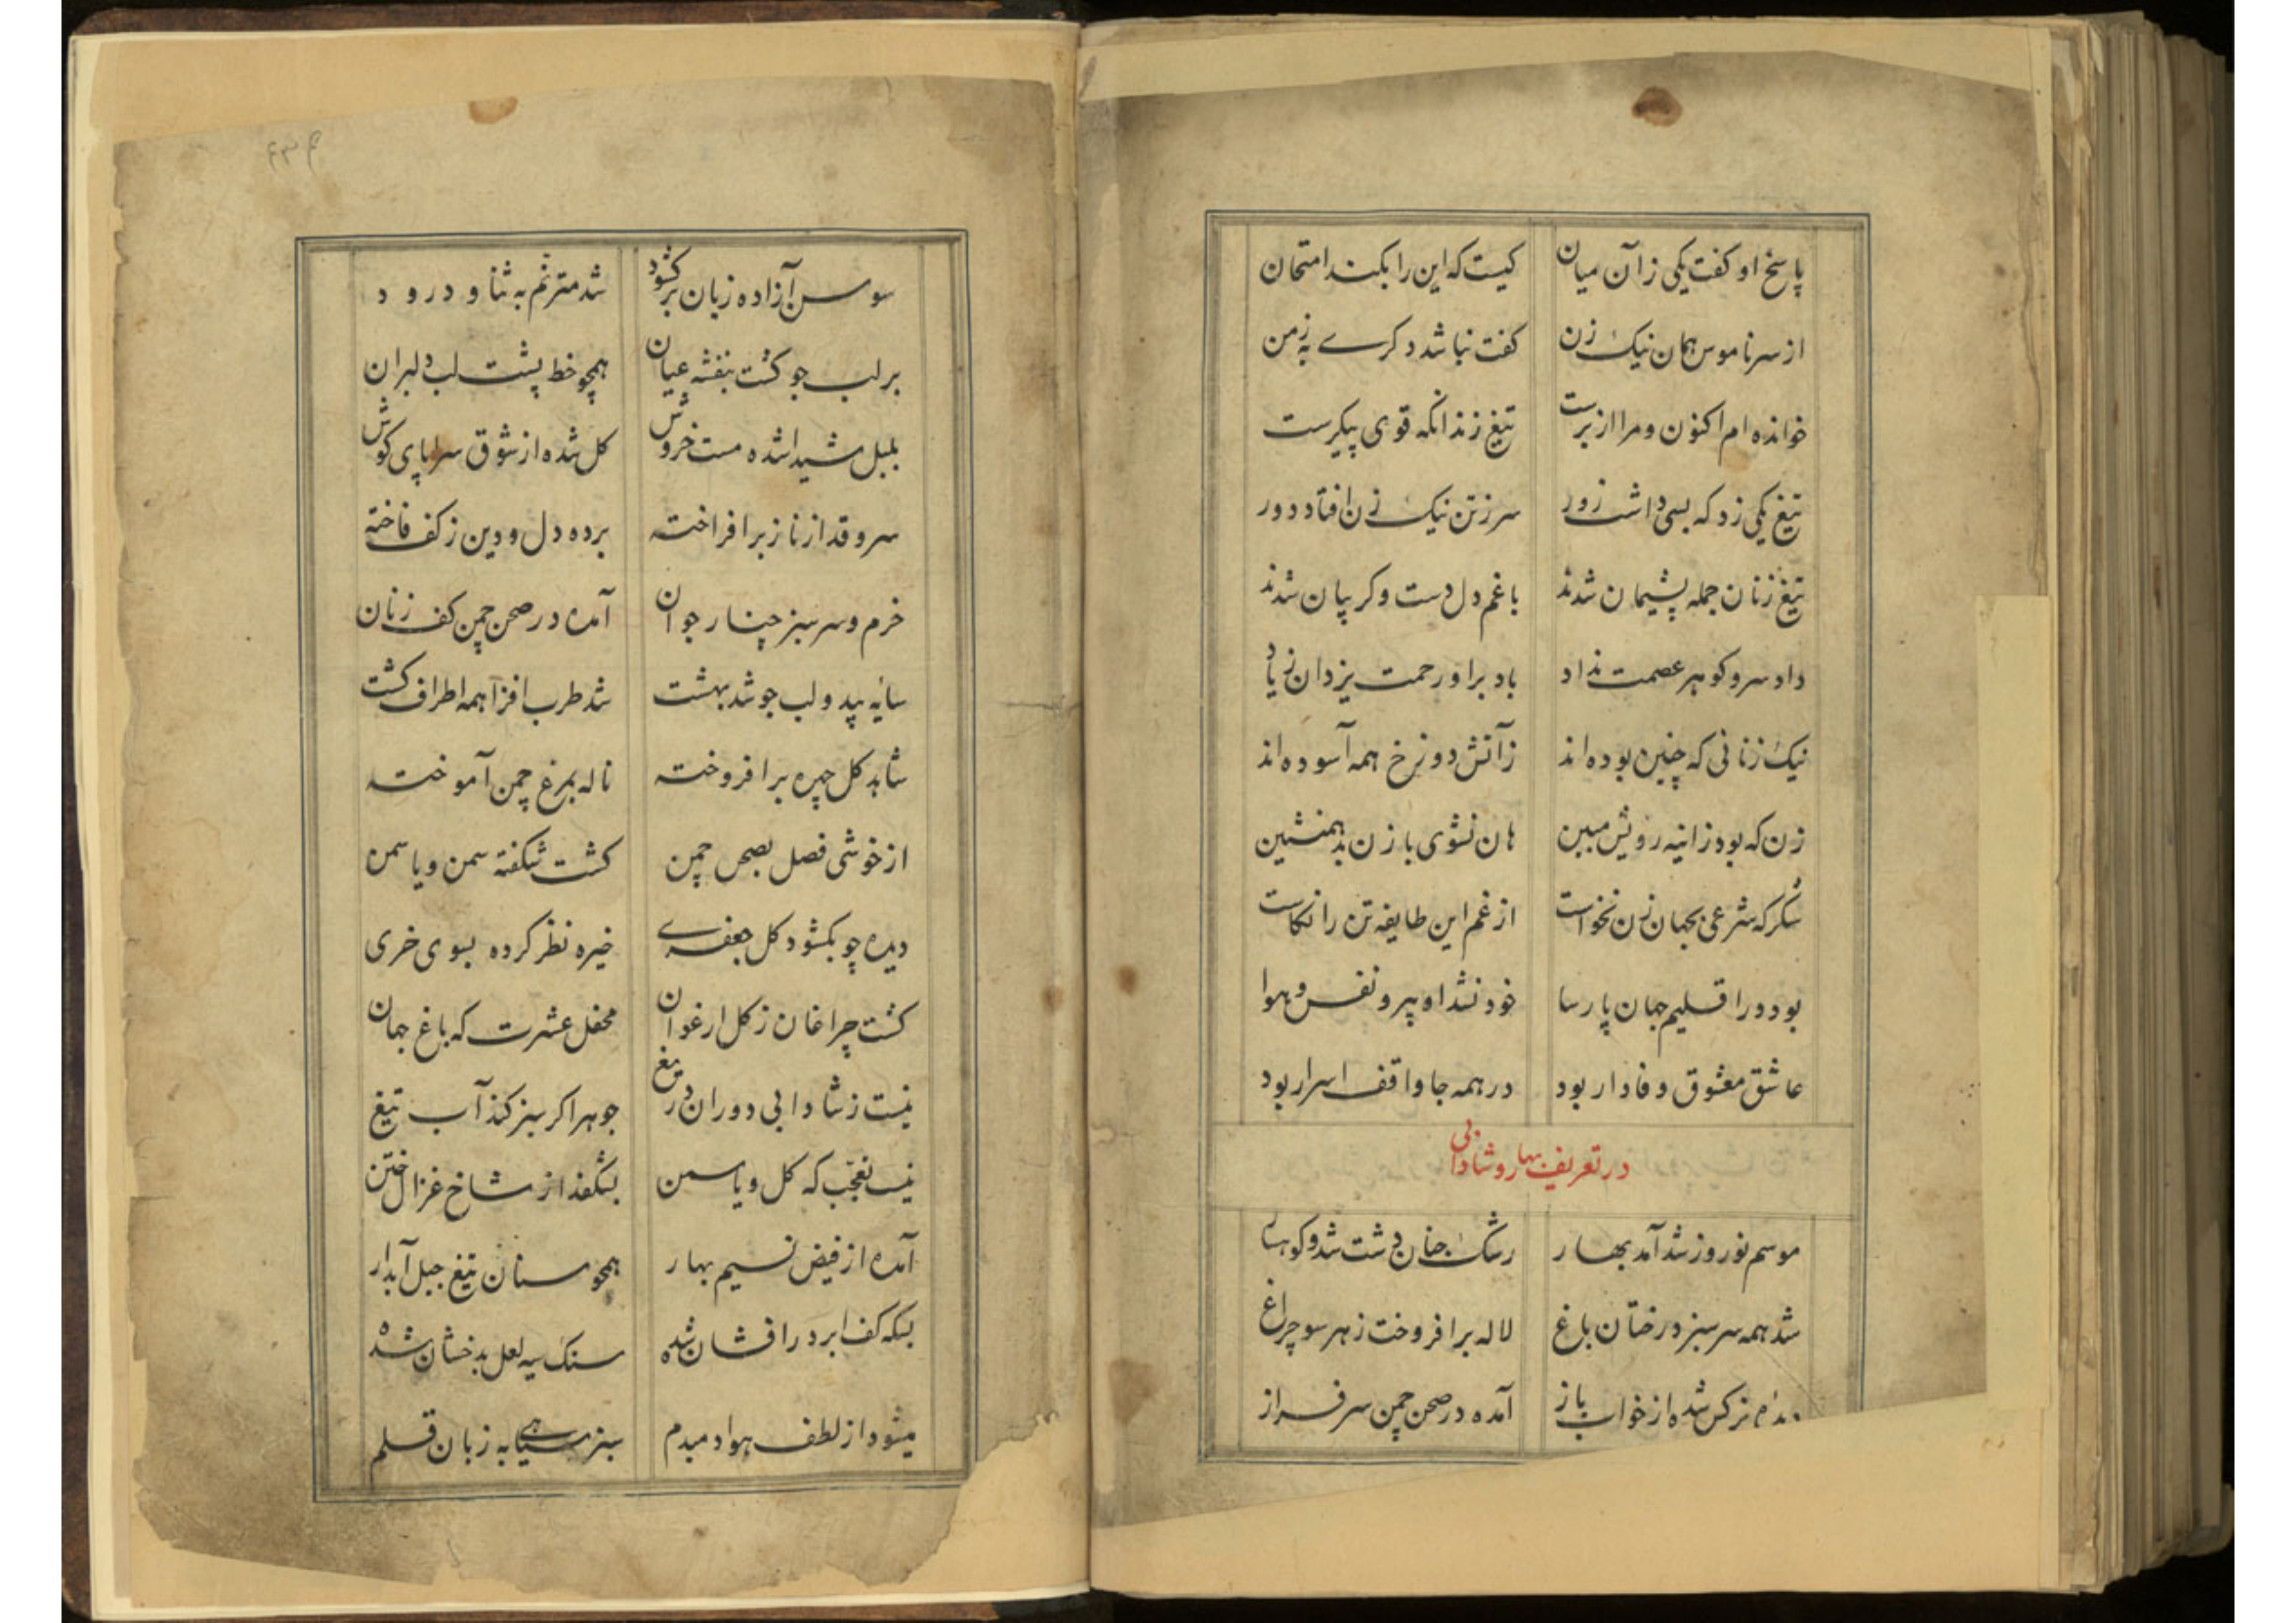 پاسخ او کفت یکی زآن میان کیست که این را بکند امتحان
از سر ناموس همان نیک زن کفت نباشد دکرے به زمن
خوانده ام اکنون و مرا از برست تیغ زند انکه قوی پیکرست
تیغ یکی زد که بسی داشت زور سر زتن نیک زن افتاد دور
تیغ زنان جمله پشیمان شدند باغم دل دست و کریبان شدند
داد سر و کوهر عصمت نداد باد بر او رحمت یزدان زیاد
نیک زنانی که چنین بوده اند زآتش دوزخ همه آسوده اند
زن که بود زانیه رویش مبین هان نشوی با زن بد همنشین
شکر که شرعی بجهان زن نخواست از غم این طایفه تن را نکاست
بود در اقلیم جهان پارسا خود نشد او پیرو نفس و هوا
عاشق معشوق وفادار بود در همه جا واقف اسرار بود
در تعریف بهار و شادابی
موسم نوروز شد آمد بهار رشک جنان دشت شد و کوهسار
شد همه سرسبز درختان باغ لاله برافروخت زهر سو چراغ
نرکس شده از خواب باز آمده در صحن چمن سرفراز
سوسن آزاده زبان برکشود شد مترنّم به ثنا و درود
بر لب جو کشت بنفشه عیان همچو خط پشت لب دلبران
بلبل شیدا شده مست خروش کل شده از شوق سراپای کوش
سرو قد از ناز برافراخته برده دل و دین زکف فاخته
خرم و سرسبز چنار جوان آمده در صحن چمن کف زنان
سایه بید و لب جو شد بهشت شد طرب افزا همه اطراف کشت
شاهد کل چهره برافروخته ناله بمرغ چمن آموخته
از خوشی فصل بصحن چمن کشت شکفته سمن و یاسمن
دیده چو بکشود کل جعفرے خیره نظر کرده بسوی خری
کشت چراغان زکل ارغوان محفل عشرت که باغ جهان
نیست زشادابی دوران دریغ جوهر اکر سبز کند آب تیغ
نیست تعجّب که کل و یاسمن بشکفد از شاخ غزال ختن
آمده از فیض نسیم بهار همچو سنان تیغ جبل آبدار
بسکه کف ابر درافشان شده سنک سیه لعل بدخشان شده
میشود از لطف هوا دمبدم سبز سیاهی به زبان قلم